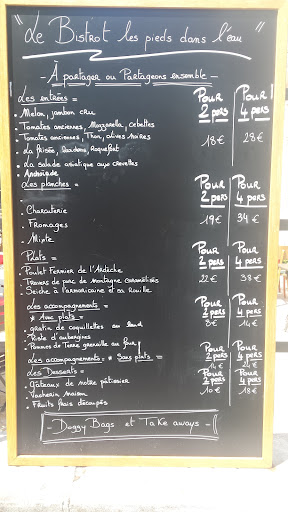 "Le Bistrot les pieds dans l'eau"
- À partager ou Partageons ensemble -
Les entrées = Pour 2 pers Pour 4 pers
. Melon, jambon cru
. Tomates anciennes, Mozzarella, cebettes
. Tomates anciennes, Thon, olives noires 18€ 29€
. La frisée, Roquefort
. La salade asiatique aux crevettes
. Anchoïade
Les planches = Pour 2 pers Pour 4 pers
. Charcuterie
. Fromages 19€ 34€
. Mixte
Plats = Pour 2 pers Pour 4 pers
. Poulet Fermier de l'Ardèche
. Travers de porc de Montagne caramélisés 22€ 38€
. Seiche à l'armoricaine et sa rouille
Les accompagnements = Pour 2 pers Pour 4 pers
* Avec plats =
. gratin de coquillettes au 8€ 14€
. Poêlée d'aubergines
. Pommes de Terre grenaille au four
Les accompagnements = * Sans plats = Pour 2 pers Pour 4 pers
14€ 24€
Les Desserts = Pour 2 pers Pour 4 pers
. Gâteaux de notre pâtissier
. Vacherin maison 10€ 18€
. Fruits frais découpés
- Doggy Bags et Take aways -